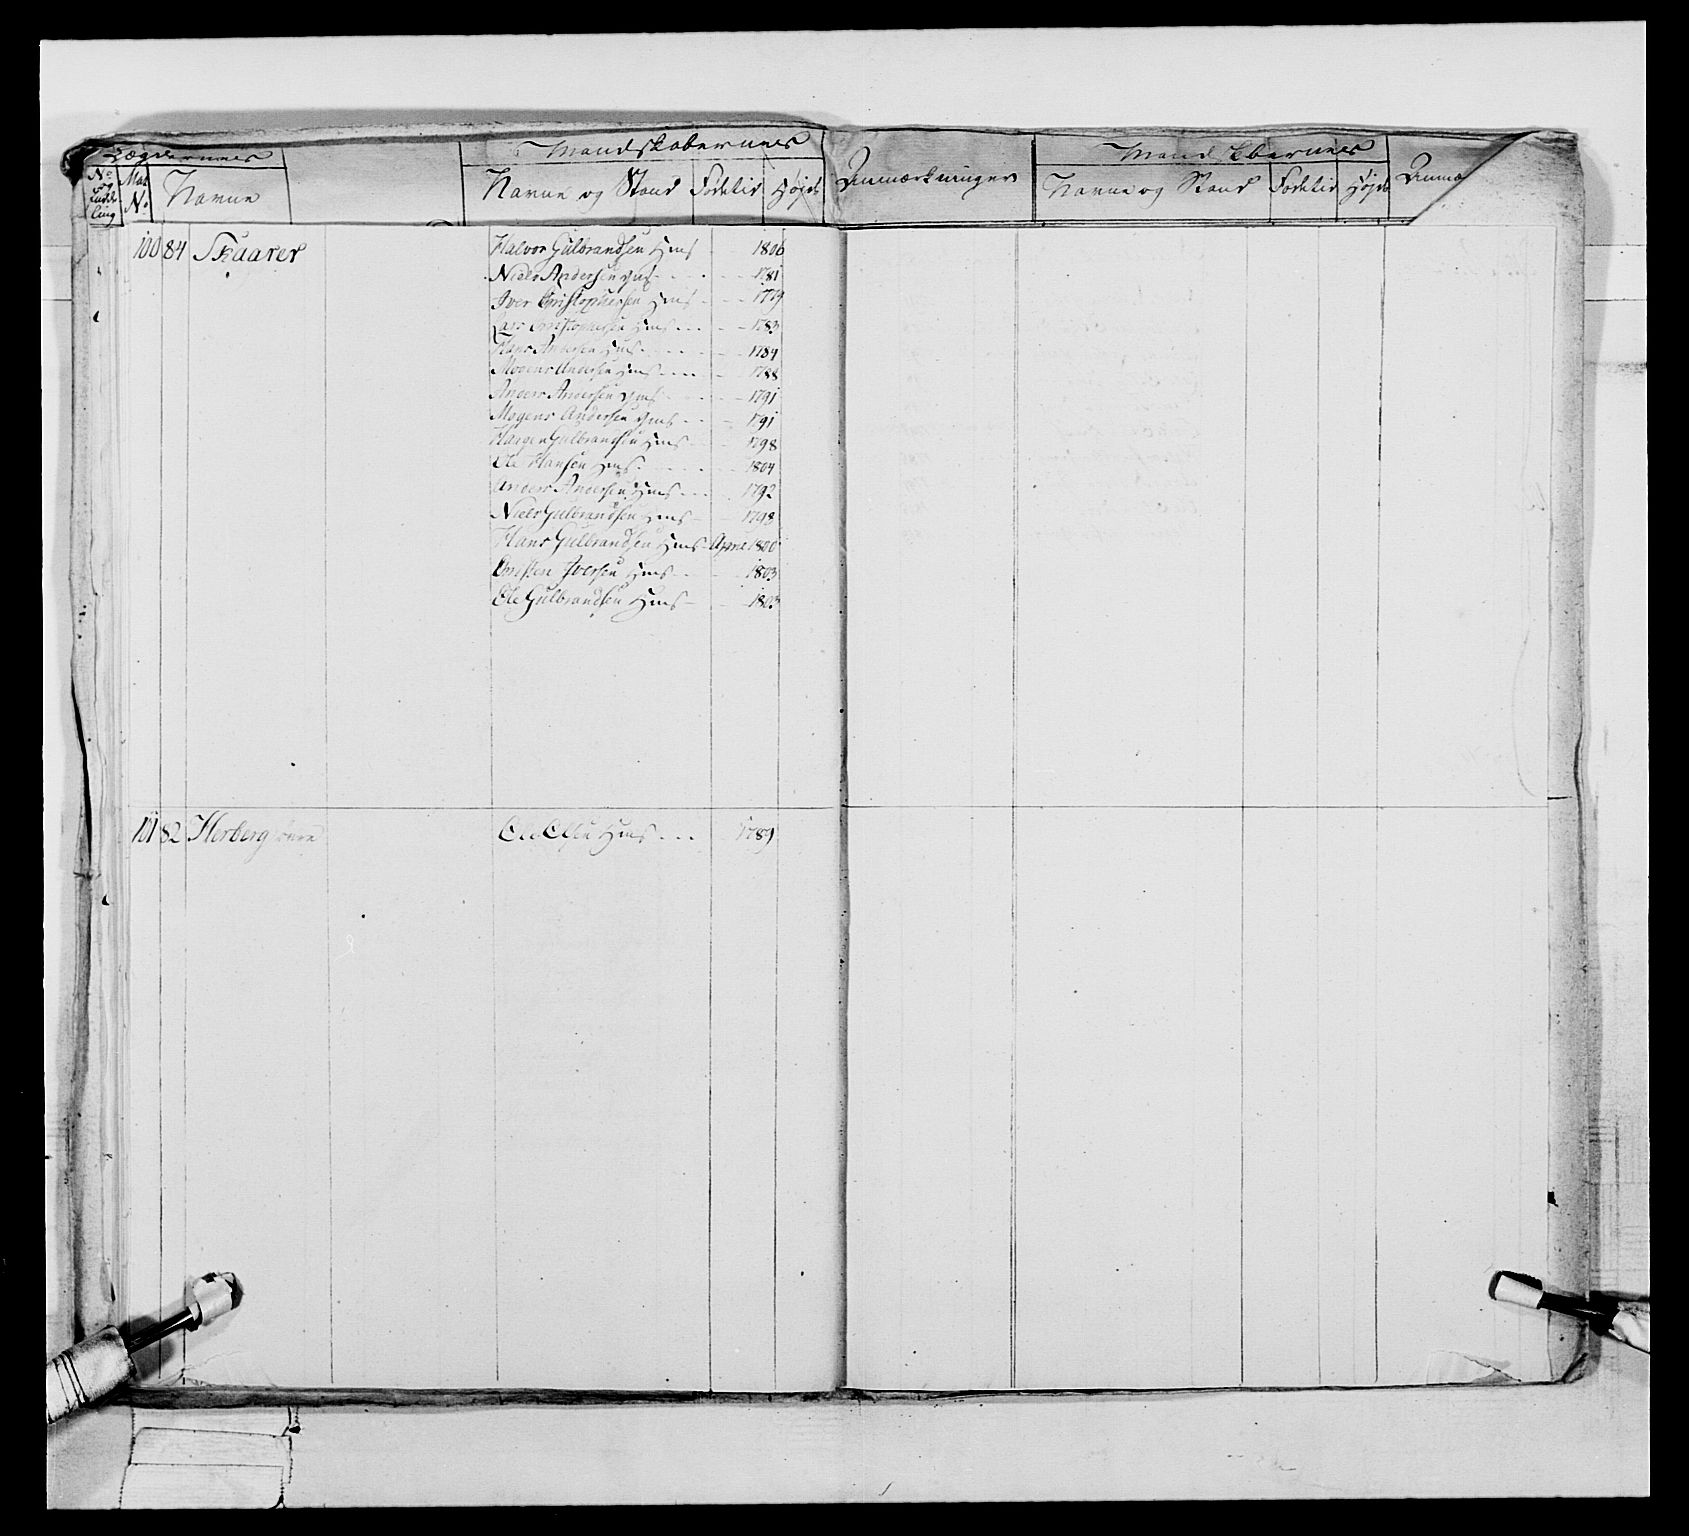 Lægdernes Mandskabernes Anmærkninger Mandskabernes Anmæ
No og Indde ling Mat No. Navne Navne og Stand Fødetid Højde Navne og Stand Fødetid Højde
100 84 Skaarer Halvor Gulbrandsen Huus 1806
Niels Andersen Huus 1781
Iver Christophersen Huus 1779
Lars Christophersen Huus 1783
Hans Andersen Huus 1784
Mogens Andersen Huus 1788
Anders Andersen Huus 1791
Mogens Andersen Huus 1791
Gulbrandsen Huus 1798
Ole Hansen Huus 1804
Anders Andersen Huus 1792
Niels Gulbrandsen Huus 1798
Hans Gulbrandsen Huus 1800
Christen Iversen Huus 1803
Ole Gulbrandsen Huus 1803
101 82 Herberg Ole Olsen Huus 1789